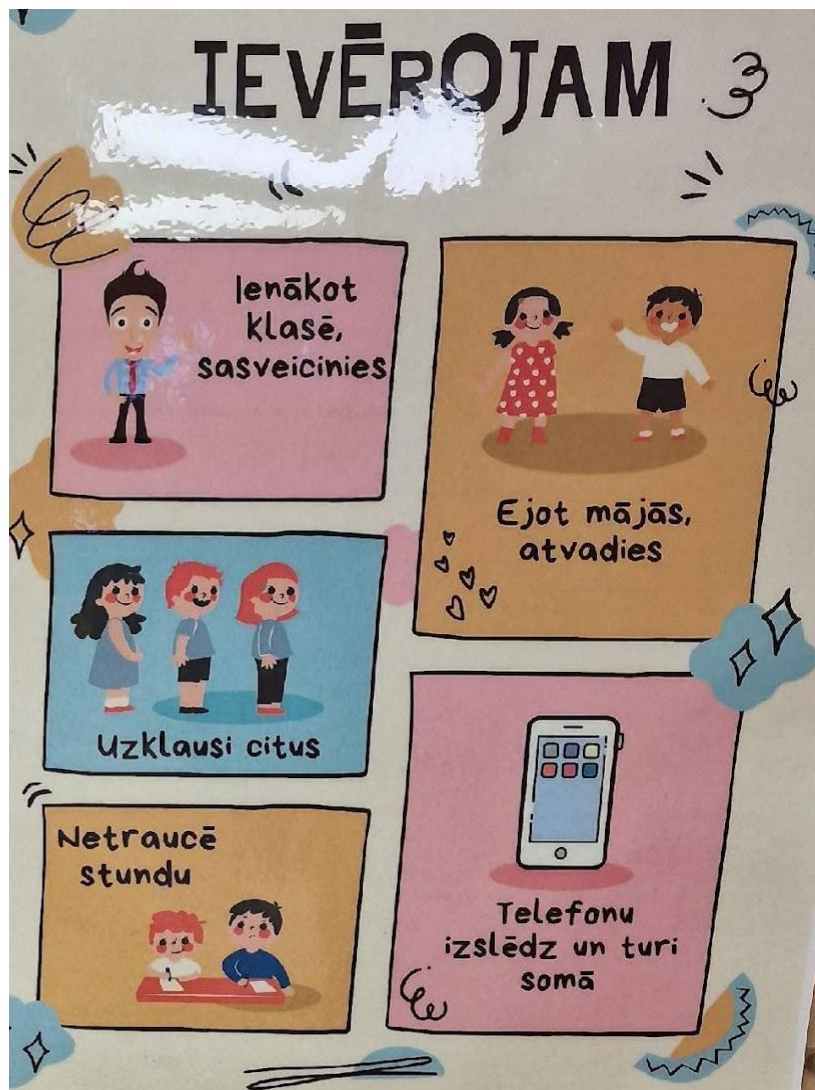 IEVĒROJAM
Ienākot
klasē,
sasveicinies
Ejot mājās,
atvadies
Uzklausi citus
Netraucē
stundu
Telefonu
izslēdz un turi
somā